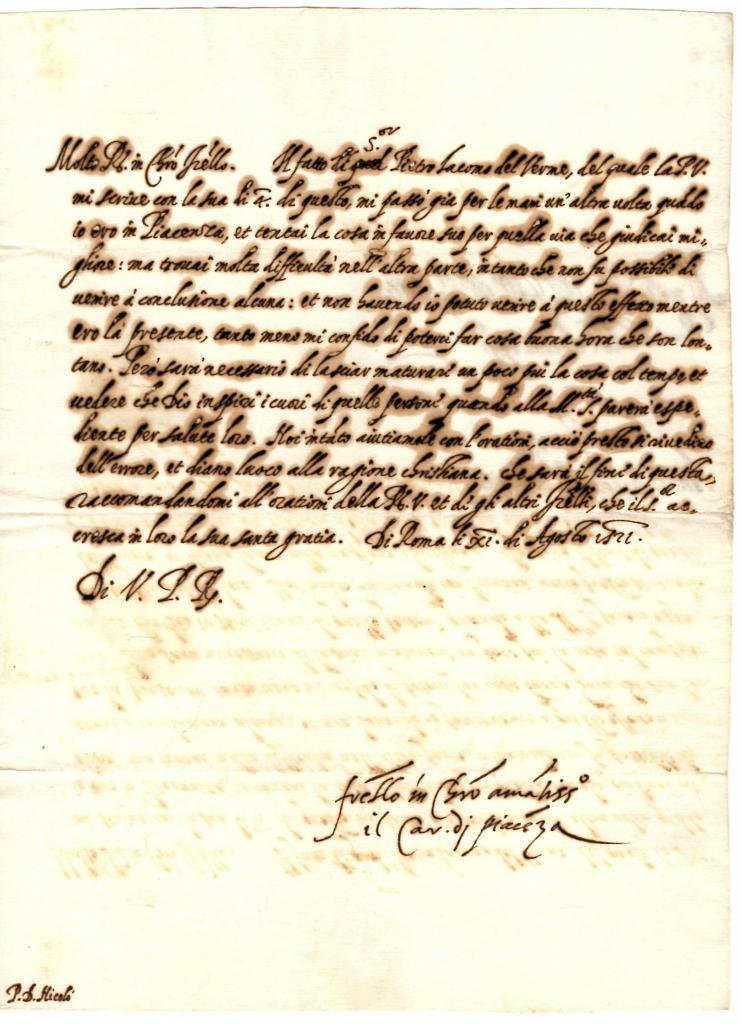 Sor
Molto R. in Chrõ frẽllo. Il fatto di Pietro Iacomo del Verme, del quale la P.V.
mi scrive con la sua di 4. di questo, mi passò già per le mani un'altra volta quãdo
io ero in Piacenza, et tentai la cosa in favore suo per quella via che giudicai mi=
gliore: ma trovai molta difficultà nell'altra parte, intanto che non fu possibile di
venire à conclusione alcuna: et non havendo io potuto venire à questo effetto mentre
ero là presente, tanto meno mi confido di poterci far cosa buona hora che son lon=
tano. Però sarà necessario di lasciar maturare un poco più la cosa col tempo, et
vedere che Dio inspiri i cuori di quelle persone quando alla M.tà S. parerà espe=
diente per salute loro. Noi intãto aiutiamole con l'orationi, acciò presto si rivedino
dell'errore, et diano luoco alla ragione christiana. che sarà il fine di questa,
raccomandandomi all'orationi della P.V. et di gli altri frẽlli, che il S.or ac=
cresca in loro la sua santa gratia. Di Roma li XI. di Agosto 1571.
Di V. P. R.
frẽllo in Chrõ amãtisso
il Car. di Piacẽza
P.D. Nicolò